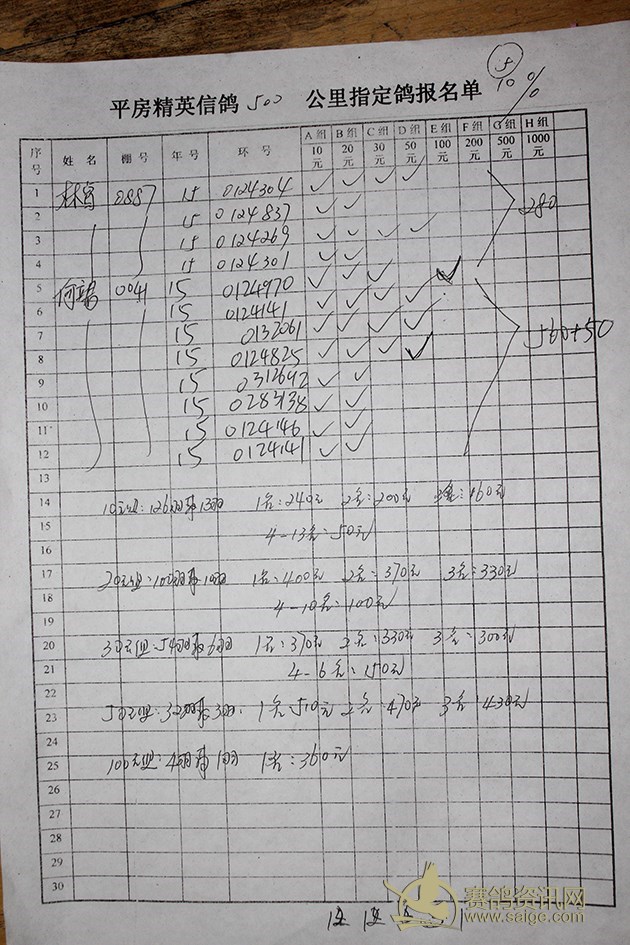 5
10%
平房精英信鸽 500 公里指定鸽报名单
序号 姓名 棚号 年号 环号 A组10元 B组20元 C组30元 D组50元 E组100元 F组200元 G组500元 H组1000元
1 0887 15 0124304 ✓ ✓ ✓ ✓
2 15 0124837 ✓ ✓ 280
3 15 0124269 ✓ ✓ ✓ ✓
4 15 0124301 ✓ ✓
5 0041 15 0124970 ✓ ✓ ✓ ✓
6 15 0124141 ✓ ✓ ✓ ✓
7 15 0132061 ✓ ✓ ✓ ✓ 560+50
8 15 0124825 ✓ ✓ ✓ ✓
9 15 0312642 ✓ ✓
10 15 0283138 ✓ ✓
11 15 0124146 ✓ ✓
12 15 0124141 ✓ ✓
13
14 10元组:126羽取13羽 1名:240元 2名:200元 160元
15 4-13名:50元
16
17 20元组:102羽取10羽 1名:400元 2名:370元 3名:330元
18 4-10名:100元
19
20 30元组:54羽取6羽 1名:370元 2名:330元 3名:300元
21 4-6名:150元
22
23 50元组:32羽取3羽: 1名510元 2名:470元 3名:430元
24
25 100元组:4羽取1羽 1名:360元
26
27
28
29
30
赛鸽资讯网
www.saige.com